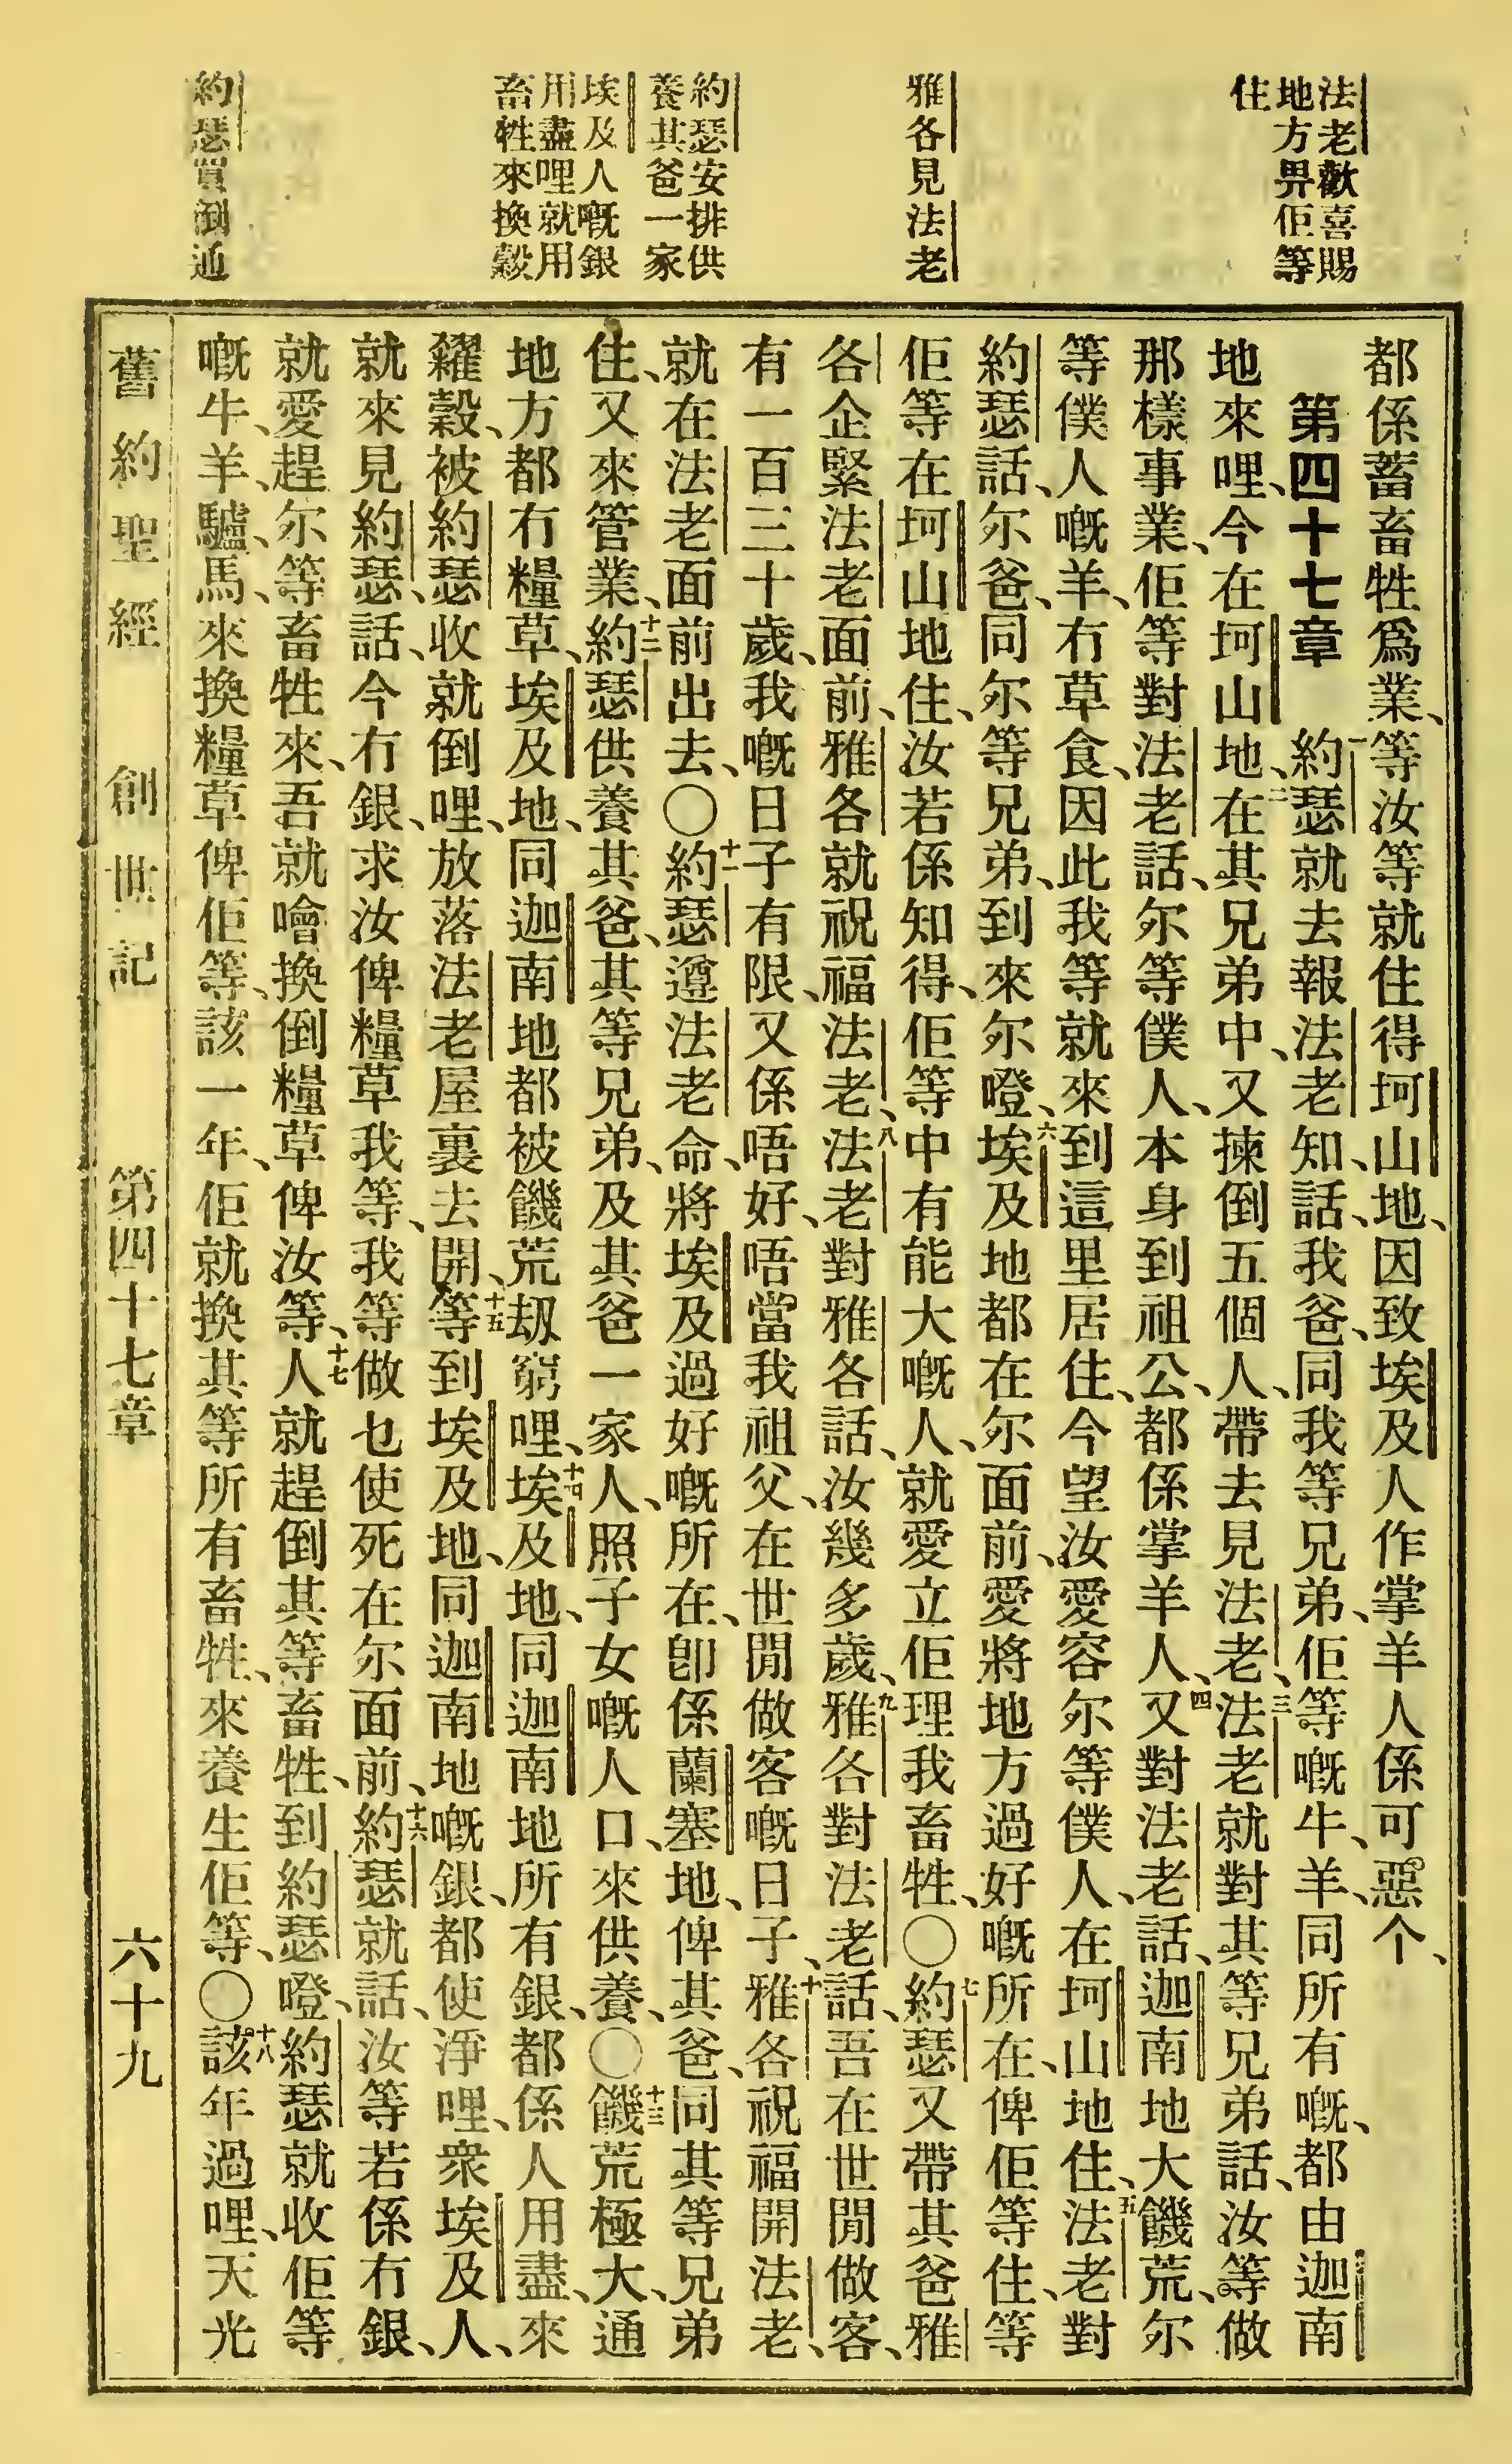 法老歡喜賜
地方畀佢等
住
雅各見法老
約瑟安排供
養其爸一家
埃及人嘅銀
用盡哩就用
畜牲來換穀
約瑟買倒通
都係蓄畜牲爲業、等汝等就住得坷山地、因致埃及人作掌羊人係可惡个、
第四十七章 一約瑟就去報法老知、話、我爸、同我等兄弟、佢等嘅牛、羊、同所有嘅、都由迦南
地來哩、今在坷山地、二在其兄弟中、又揀倒五個人、帶去見法老、三法老就對其等兄弟話、汝等做
那樣事業、佢等對法老話、尔等僕人、本身到祖公、都係掌羊人、四又對法老話、迦南地大饑荒、尔
等僕人嘅羊、冇草食、因此我等就來到這里居住、今望汝愛容尔等僕人、在坷山地住、五法老對
約瑟話、尔爸、同尔等兄弟、到來尔噔、六埃及地都在尔面前、愛將地方過好嘅所在、俾佢等住、等
佢等在坷山地住、汝若係知得、佢等中有能大嘅人、就愛立佢理我畜牲、〇七約瑟又帶其爸雅
各企緊法老面前、雅各就祝福法老、八法老對雅各話、汝幾多歲、九雅各對法老話、吾在世閒做客、
有一百三十歲、我嘅日子有限、又係唔好、唔當我祖父、在世閒做客嘅日子、十雅各祝福開法老、
就在法老面前出去、〇十一約瑟遵法老命、將埃及過好嘅所在、卽係蘭塞地、俾其爸、同其等兄弟
住、又來管業、十二約瑟供養其爸、其等兄弟、及其爸一家人、照子女嘅人口、來供養、〇十三饑荒極大、通
地方都冇糧草、埃及地、同迦南地都被饑荒刼窮哩、十四埃及地、同迦南地所有銀、都係人用盡、來
糴穀、被約瑟收就倒哩、放落法老屋裏去開、十五等到埃及地、同迦南地嘅銀、都使淨哩、衆埃及人、
就來見約瑟、話、今冇銀、求汝俾糧草我等、我等做乜使死在尔面前、十六約瑟就話、汝等若係冇銀、
就愛趕尔等畜牲來、吾就噲換倒糧草俾汝等、十七人就趕倒其等畜牲、到約瑟噔、約瑟就收佢等
嘅牛、羊、驢、馬、來換糧草俾佢等、該一年、佢就換其等所有畜牲、來養生佢等、〇十八該年過哩、天光
舊約聖經 創世記 第四十七章 六十九